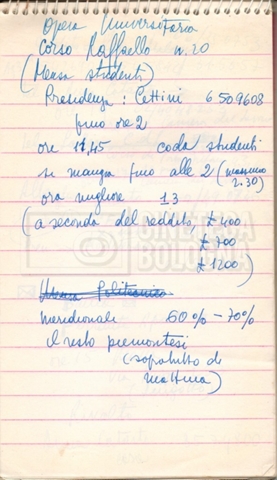 Opera Universitaria
Corso Raffaello n. 20
(Mensa studenti)
Presidenza: Cettini 6509608
fino ore 2
ore 11,45 coda studenti
si mangia fino alle 2 (massimo 2.30)
ora migliore 13
(a seconda del reddito, £ 400
£ 700
£ 1200)
Mensa Politecnico
meridionali 60% - 70%
il resto piemontesi
(soprattutto di
mattina)
CINETECA
BOLOGNA